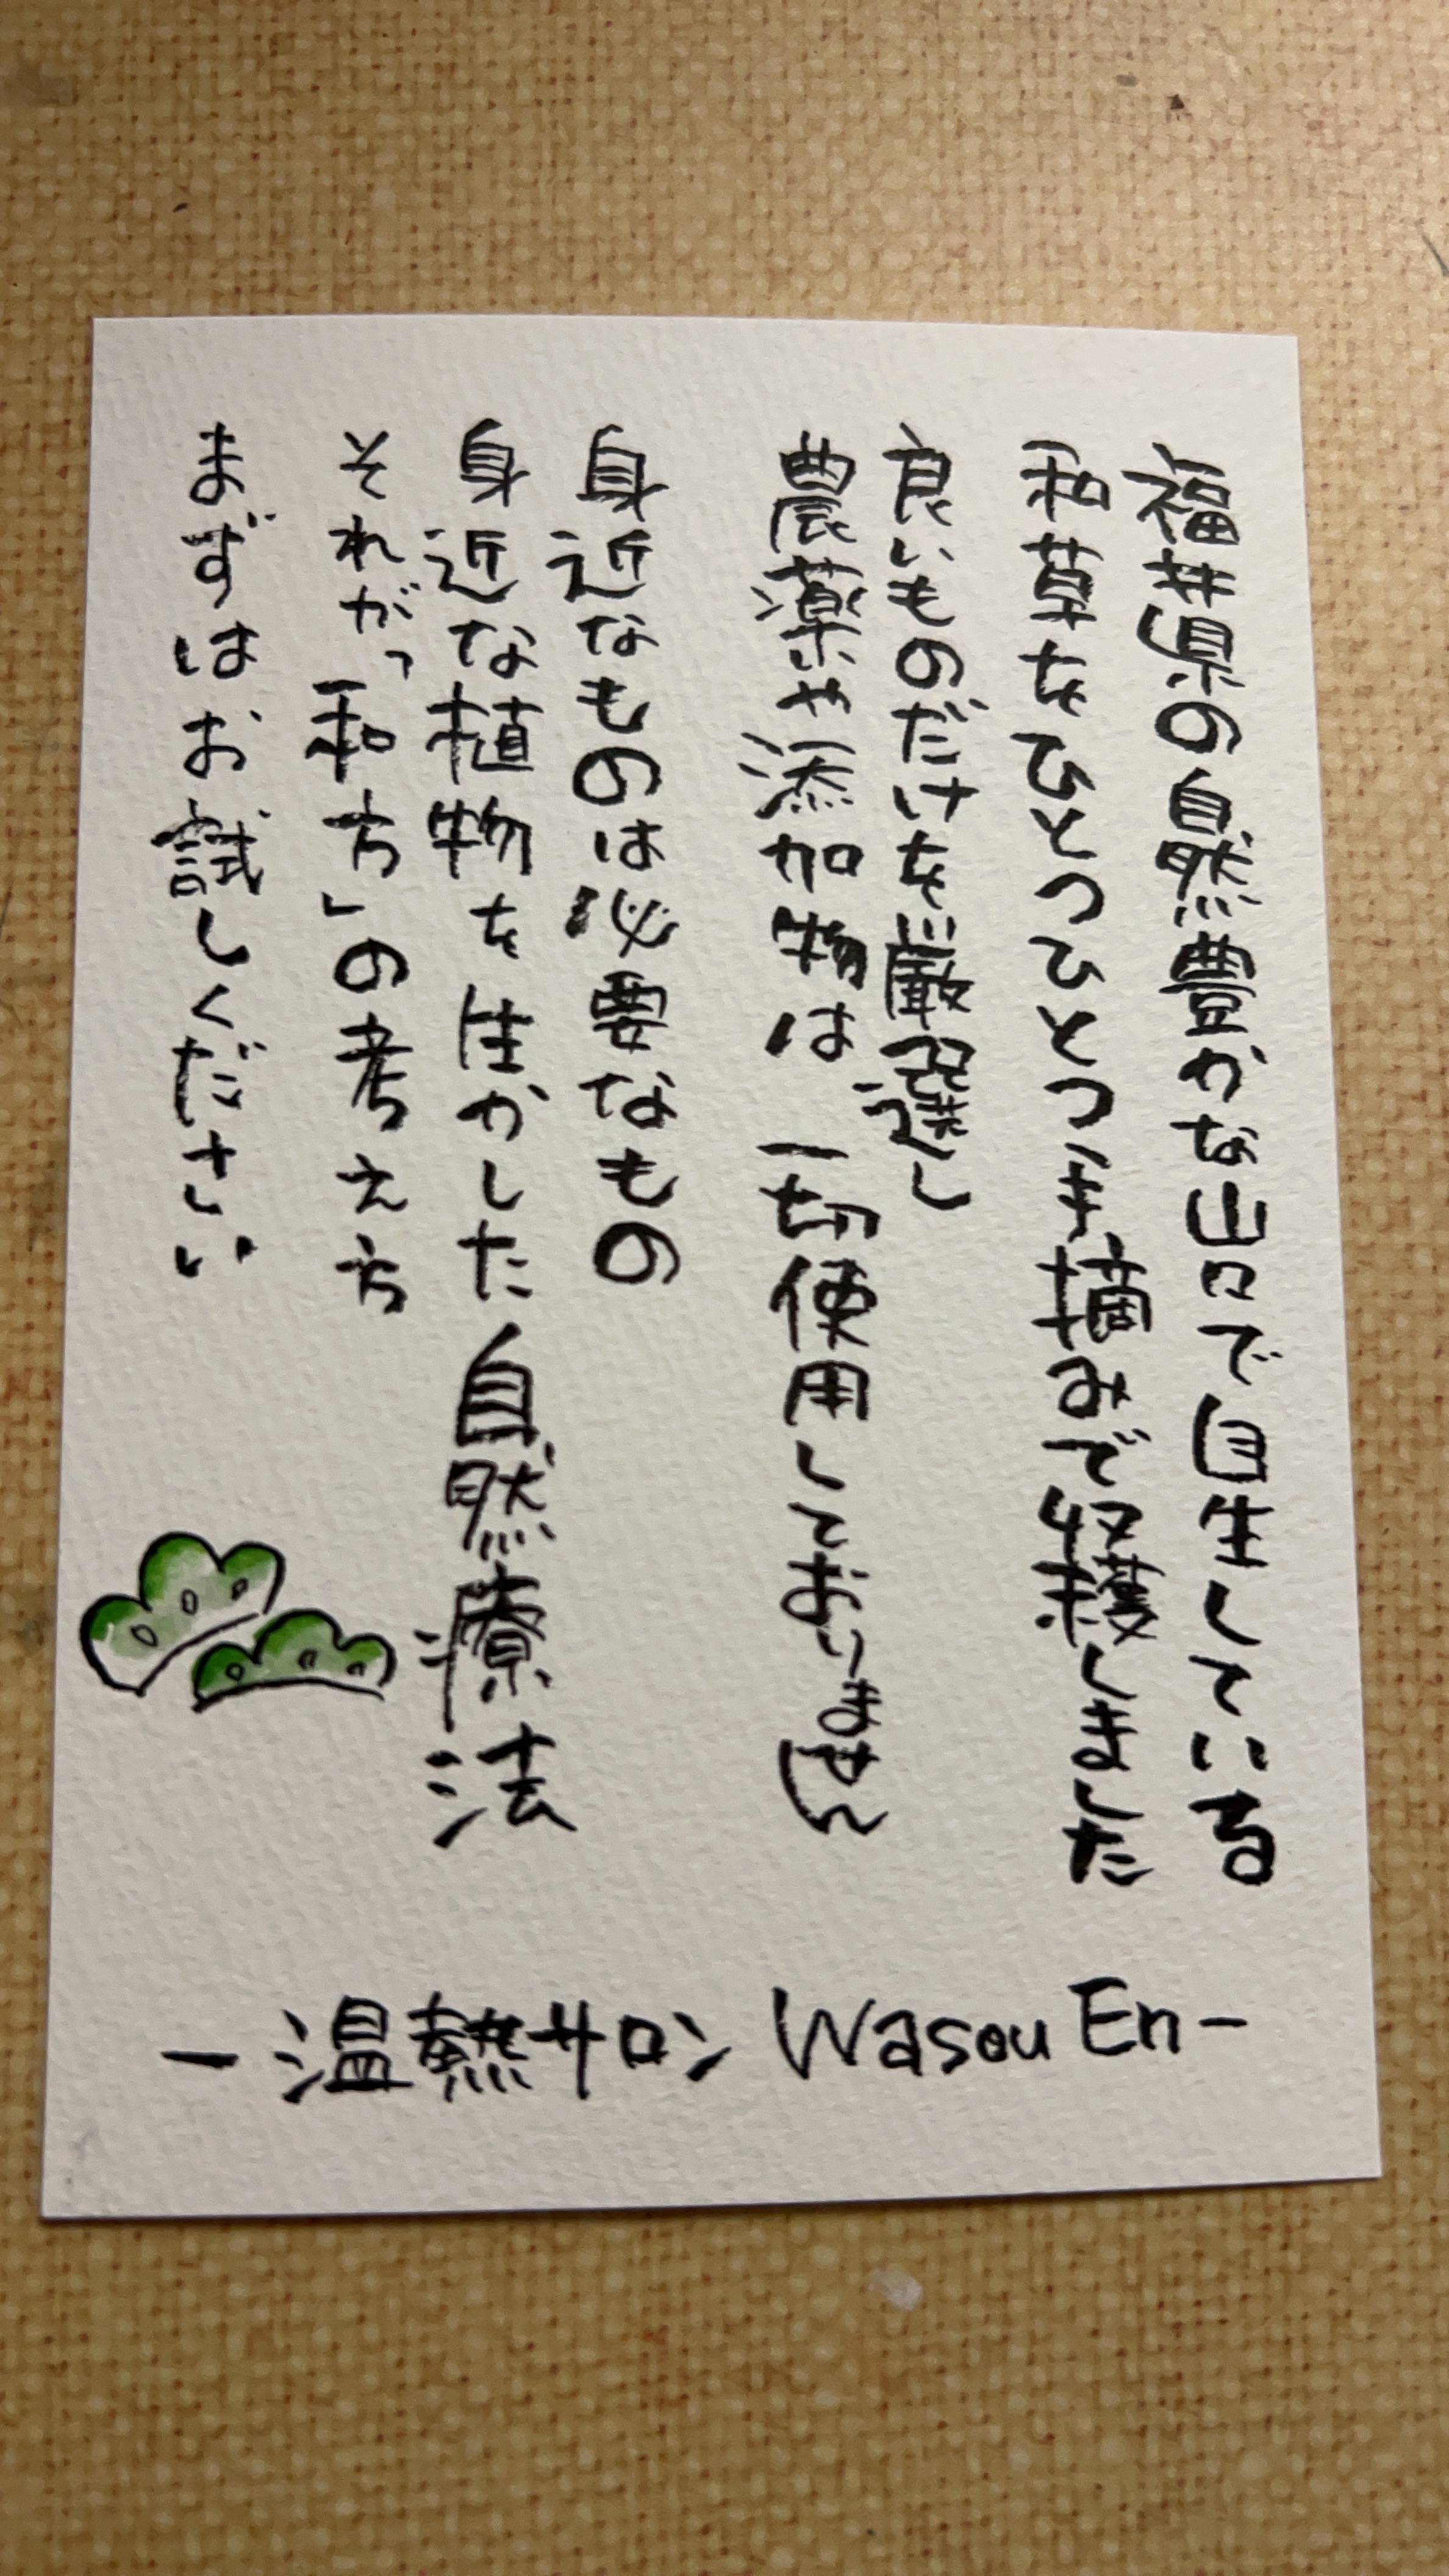 福井県の自然豊かな山々で自生している
和草をひとつひとつ手摘みで収穫しました
良いものだけを厳選し
農薬や添加物は 一切使用しておりません
身近なものは必要なもの
身近な植物を生かした自然療法
それが、「和方」の考え方
まずはお試しください
－温熱サロン Wasou En－